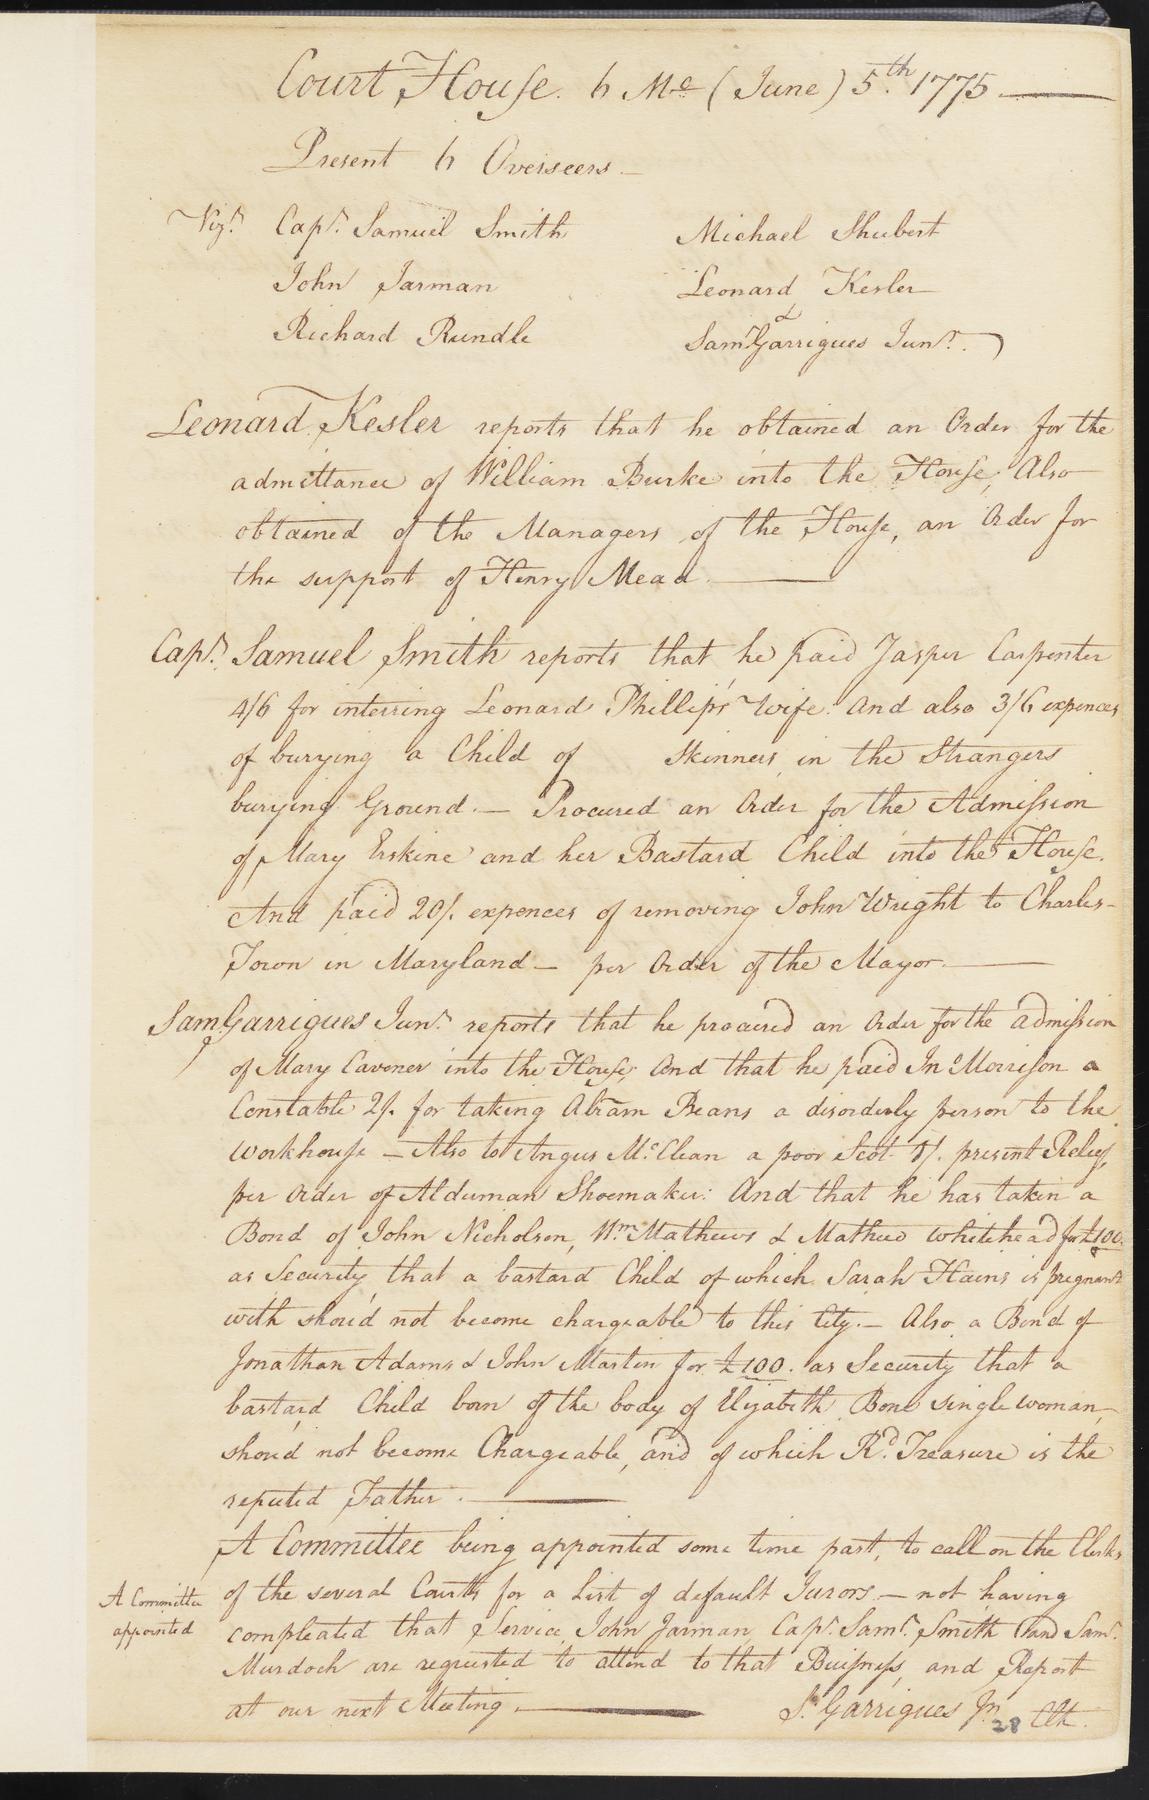 Court House. 6 Mo (June) 5.th 1775
Present 6 Overseers
Vizt. Capt. Samuel Smith
John Jarman
Richard Rundle
Michael Shubert
Leonard Kesler
&
Saml Garrigues Junr.
Leonard Kesler reports that he obtained an Order for the
admittance of William Burke into the House, Also
obtained of the Managers of the House, an Order for
the support of Henry Mead.
Capt. Samuel Smith reports that he paid Jasper Carpenter
4/6 for interring Leonard Phillips's Wife. And also 3/6 expences
of burying a Child of Skinners, in the Strangers
burying Ground. — Procured an Order for the Admission
of Mary Erskine and her Bastard Child into the House.
And paid 20/. expences of removing John Wright to Charles-
Town in Maryland — per Order of the Mayor.
Sam Garrigues Junr. reports that he procured an Order for the admission
of Mary Cavener into the House, And that he paid Jno Morrison a
Constable 2/. for taking Abram Beans a disorderly person to the
Workhouse — Also to Angus McClean a poor Scot /. present Relief,
per Order of Alderman Shoemaker: And that he has taken a
Bond of John Nicholson, Wm Mathews & Mathew Whitehead for £100.
as Security that a bastard Child of which Sarah Hains is pregnant
with shou'd not become chargeable to this City. — Also a Bond of
Jonathan Adams & John Martin for £100. as Security that a
bastard Child born of the body of Elizabeth Bone single woman,
shou'd not become Chargeable, and of which Rd. Treasure is the
reputed Father.
A Committee being appointed some time past, to call on the Clerks
of the several Courts for a List of default Jurors — not having
compleated that Service, John Jarman, Capt. Saml. Smith and Saml.
Murdoch are requested to attend to that Buisness, and Report
at our next Meeting.
A Committee
appointed
S. Garrigues Jr. Clk.
28